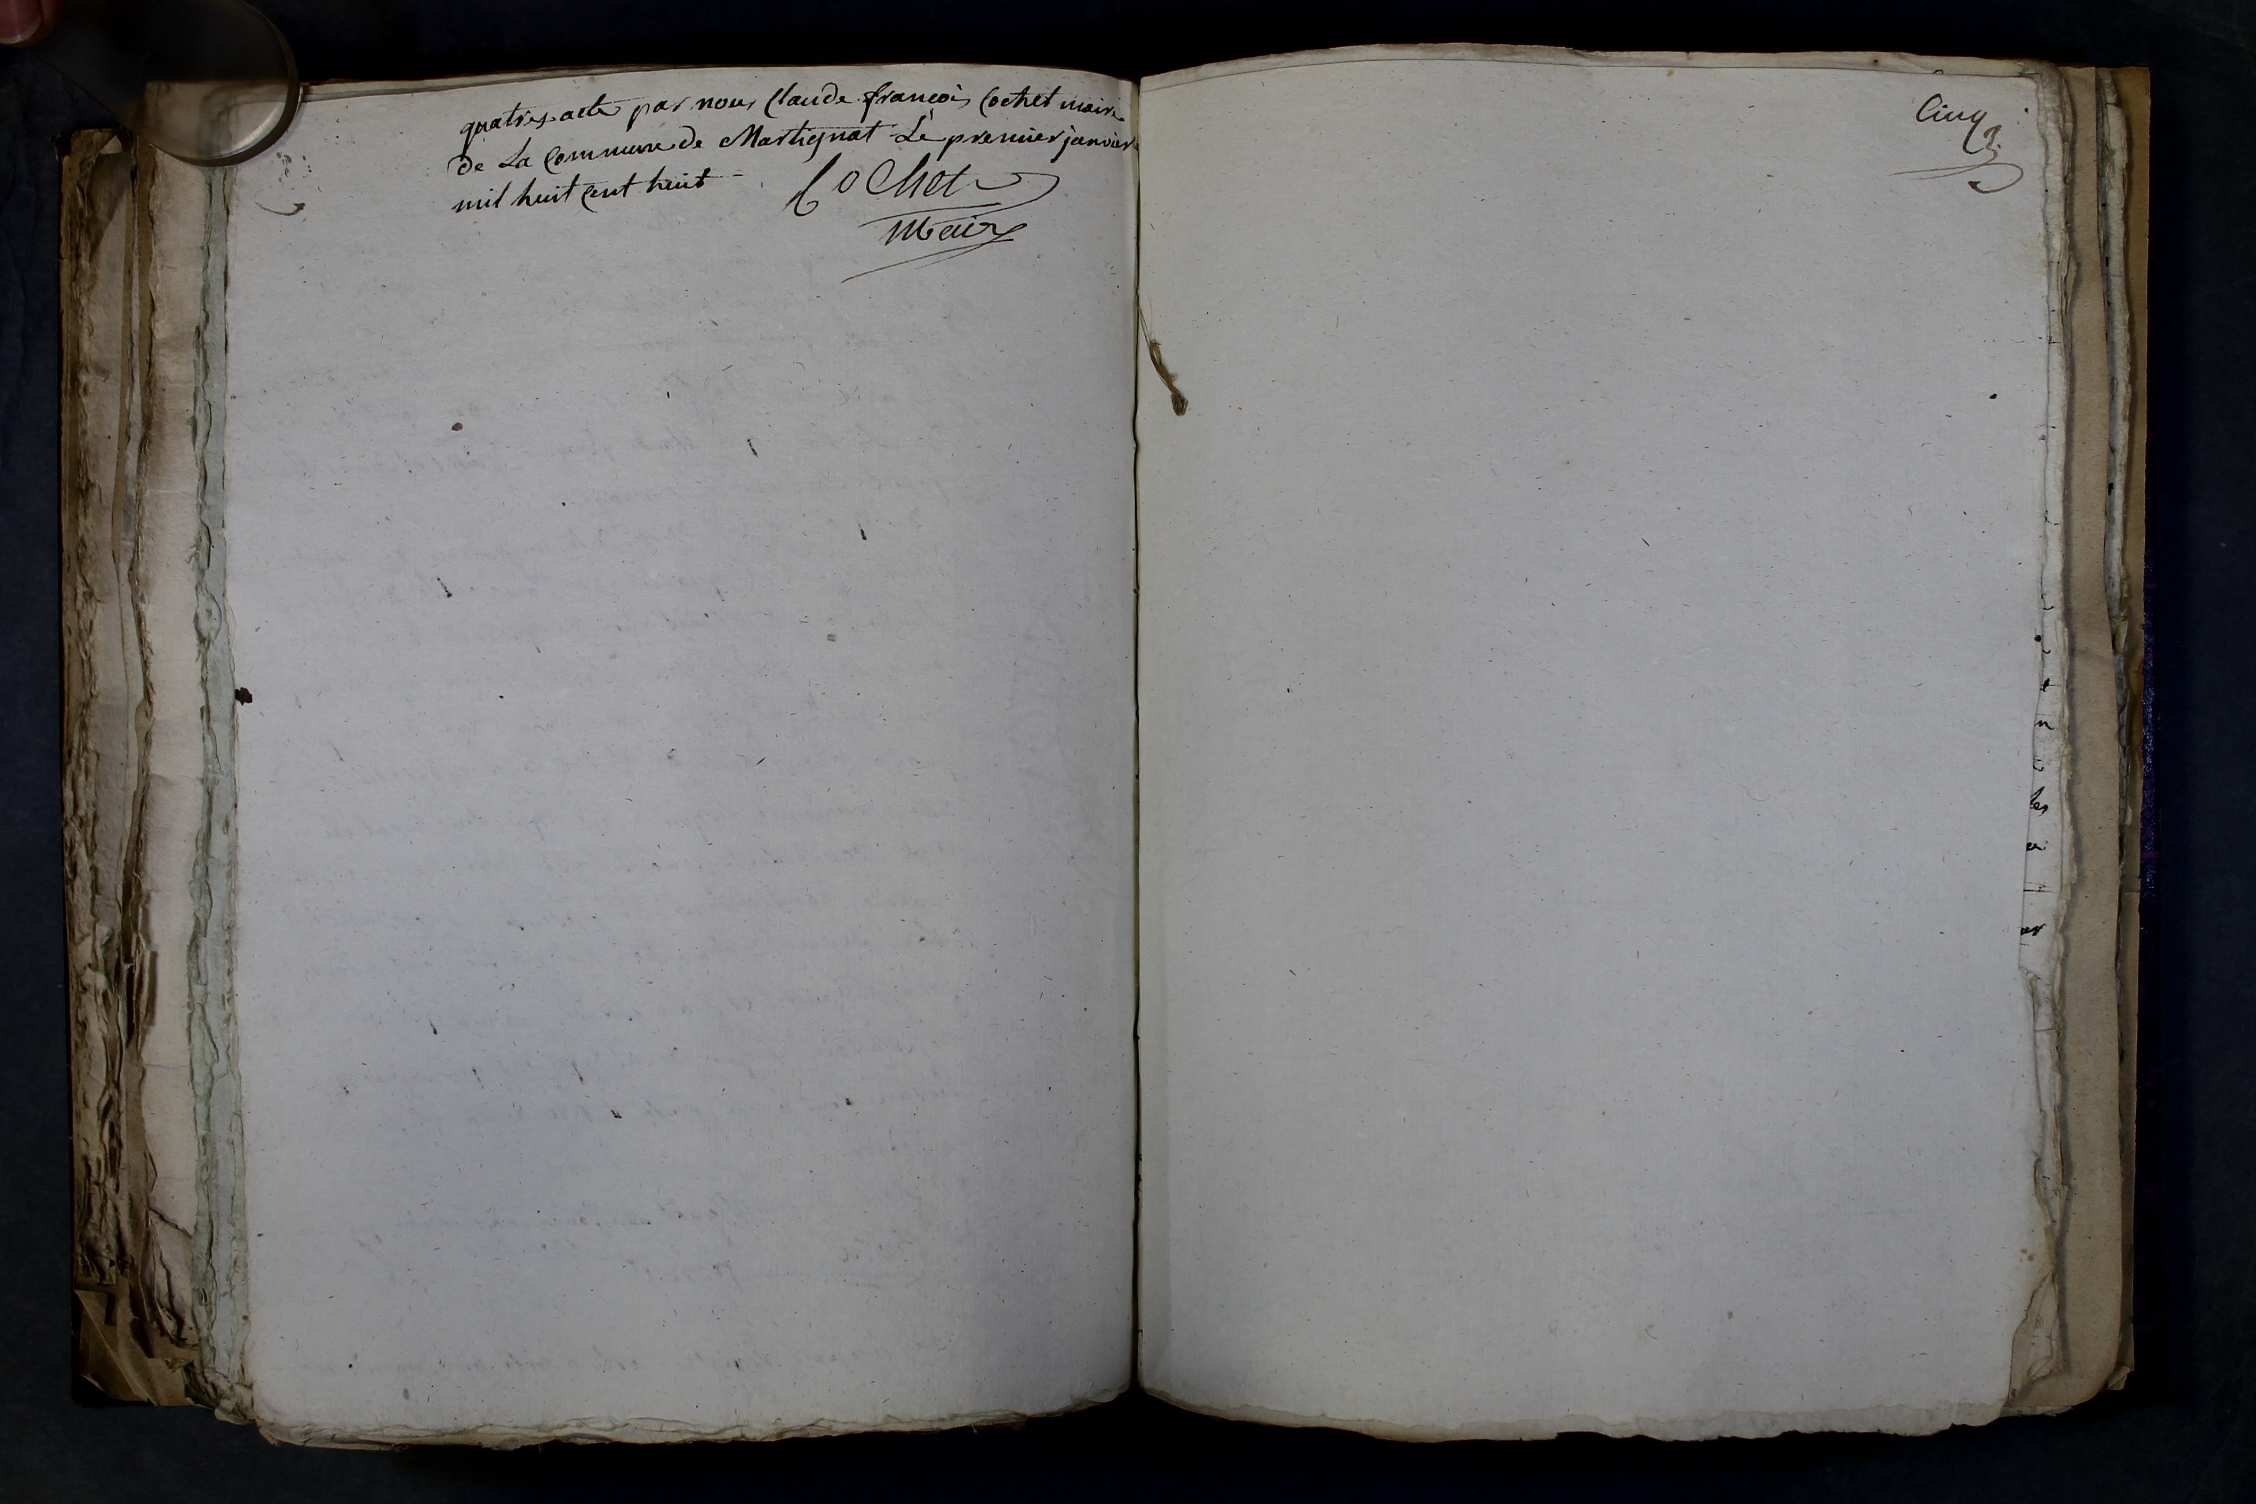 quatres acte par nous Claude françois Cochet maire
de La Commune de Martignat Le premier janvier
mil huit Cent huit
Cochet
Maire
Cinq